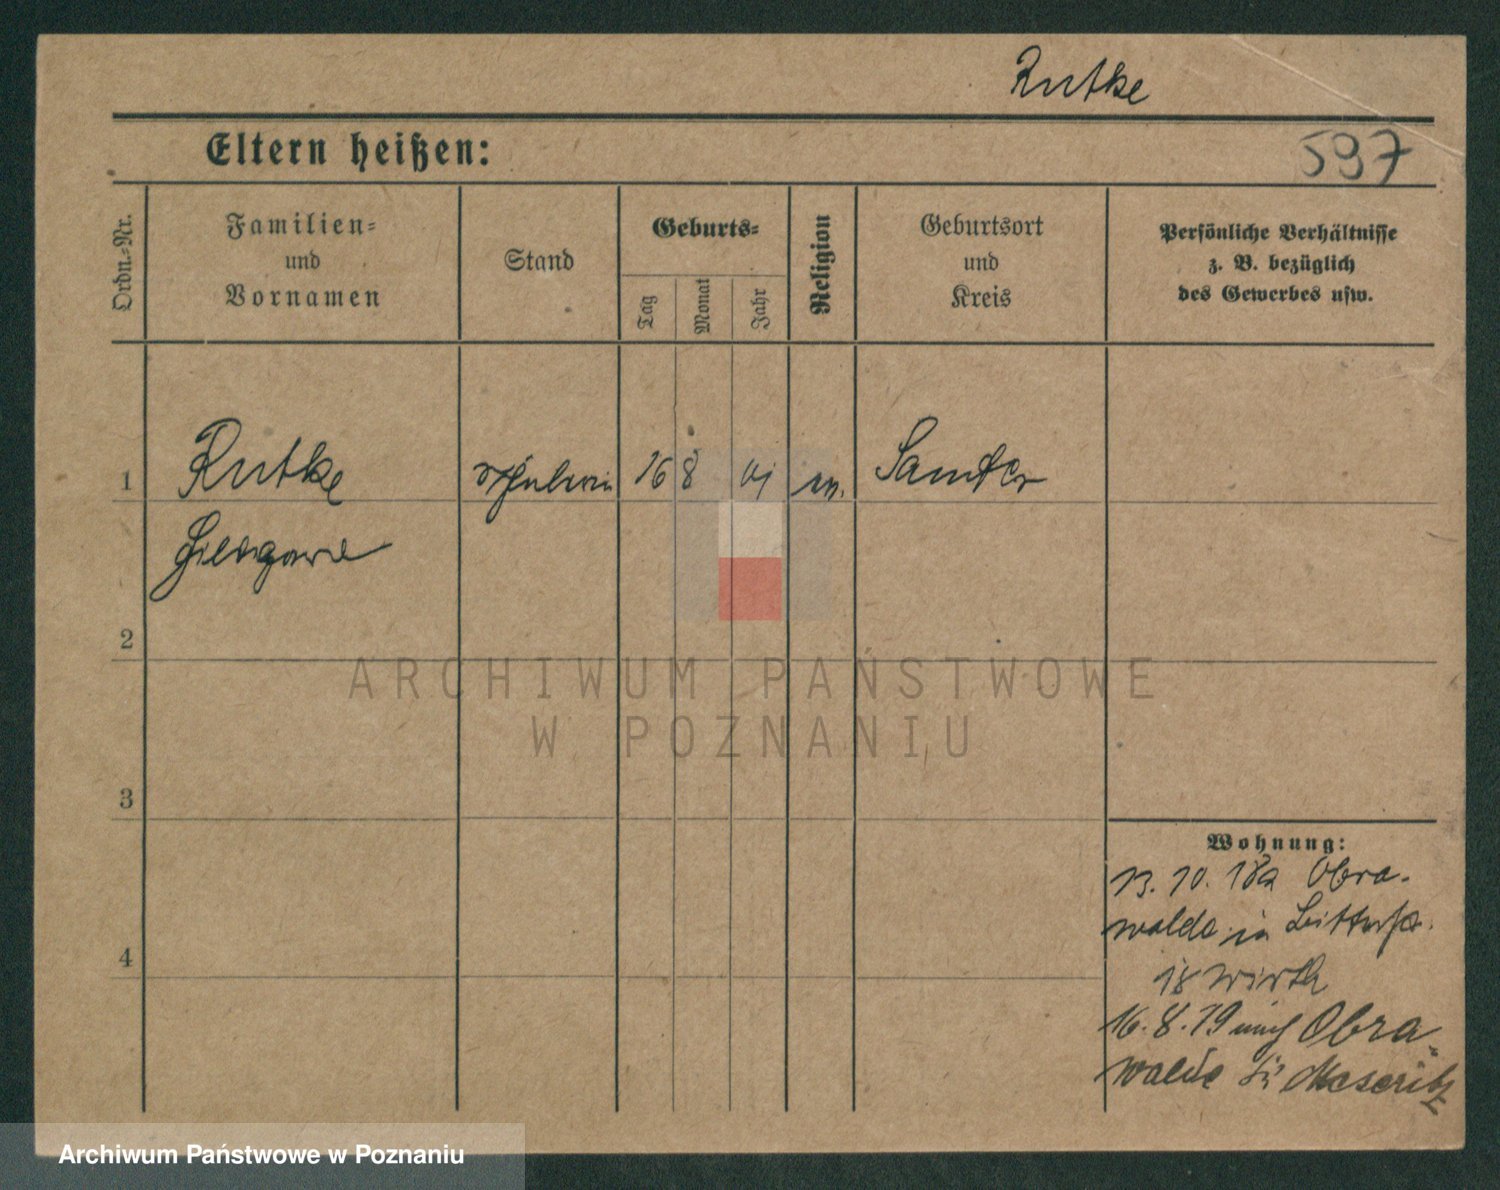 Rutke
Eltern heißen:
597
Ordn.-Nr.
Familien-
und
Vornamen
Stand
Geburts-
Tag
Monat
Jahr
Religion
Geburtsort
und
Kreis
Persönliche Verhältnisse
z. B. bezüglich
des Gewerbes usw.
1
Rutke
16
8
Samter
Hildegard
2
ARCHIWUM PAŃSTWOWE
W POZNANIU
3
Wohnung:
13. 10. 18a Obra-
walde in
4
18 Wirth
16. 8. 19 nach Obra-
walde Meseritz
Archiwum Państwowe w Poznaniu